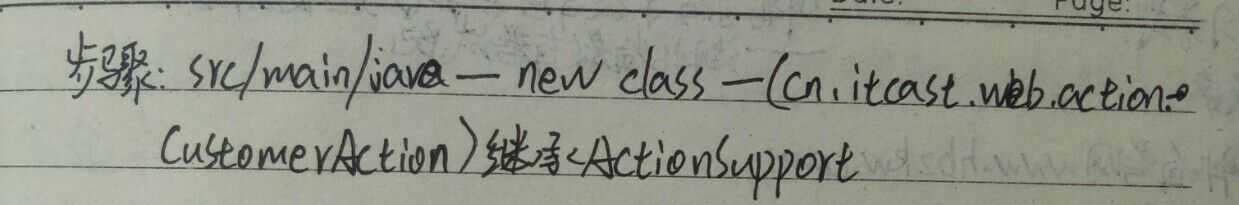 Page:
步骤: src/main/java — new class —(cn.itcast.web.action.
CustomerAction)继承ActionSupport